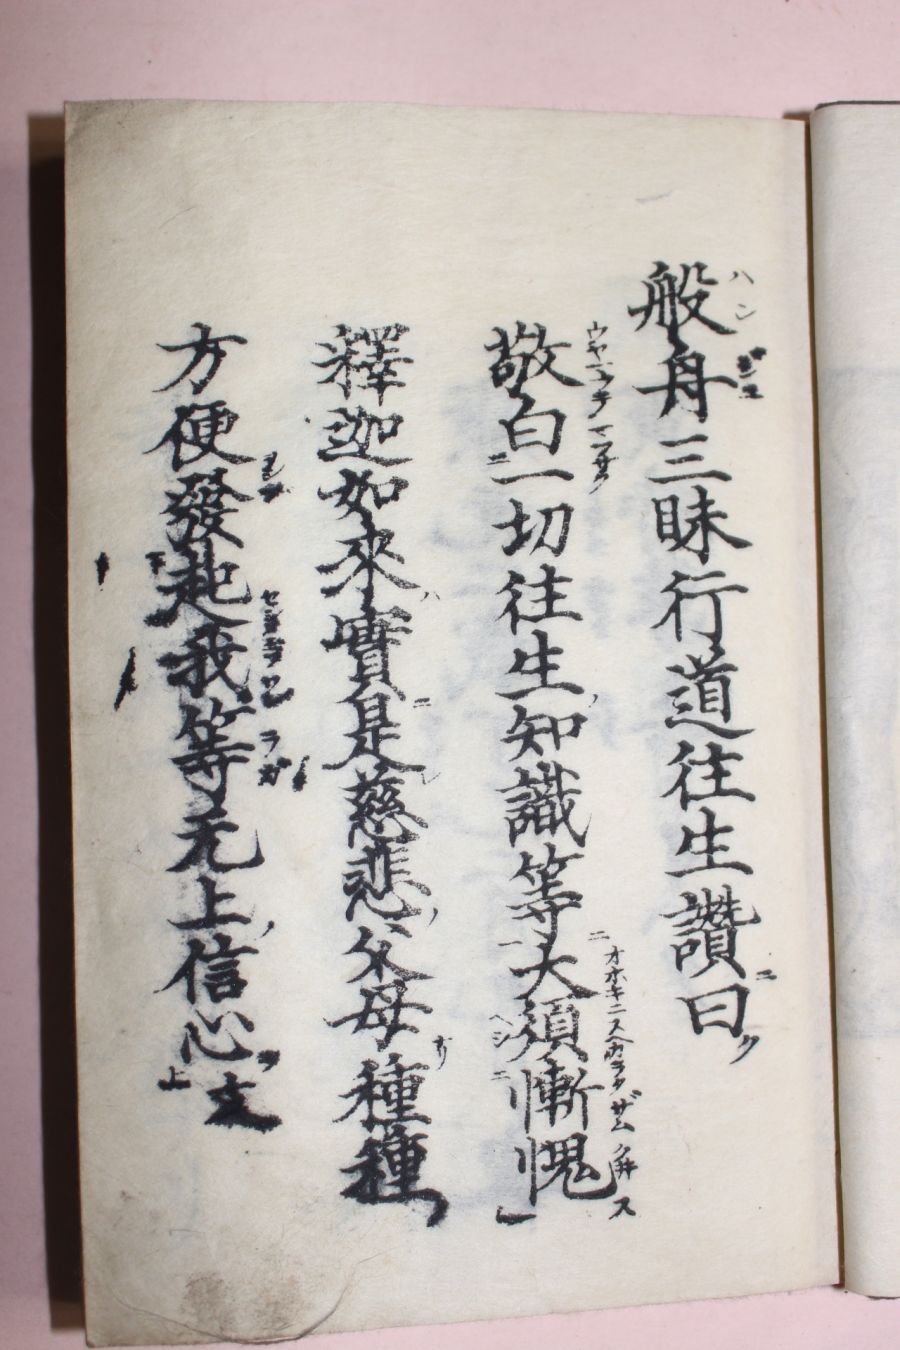 般舟三昧行道往生讃曰
敬白一切往生知識等大須慚愧
釋迦如來實是慈悲父母種種
方便發起我等无上信心文